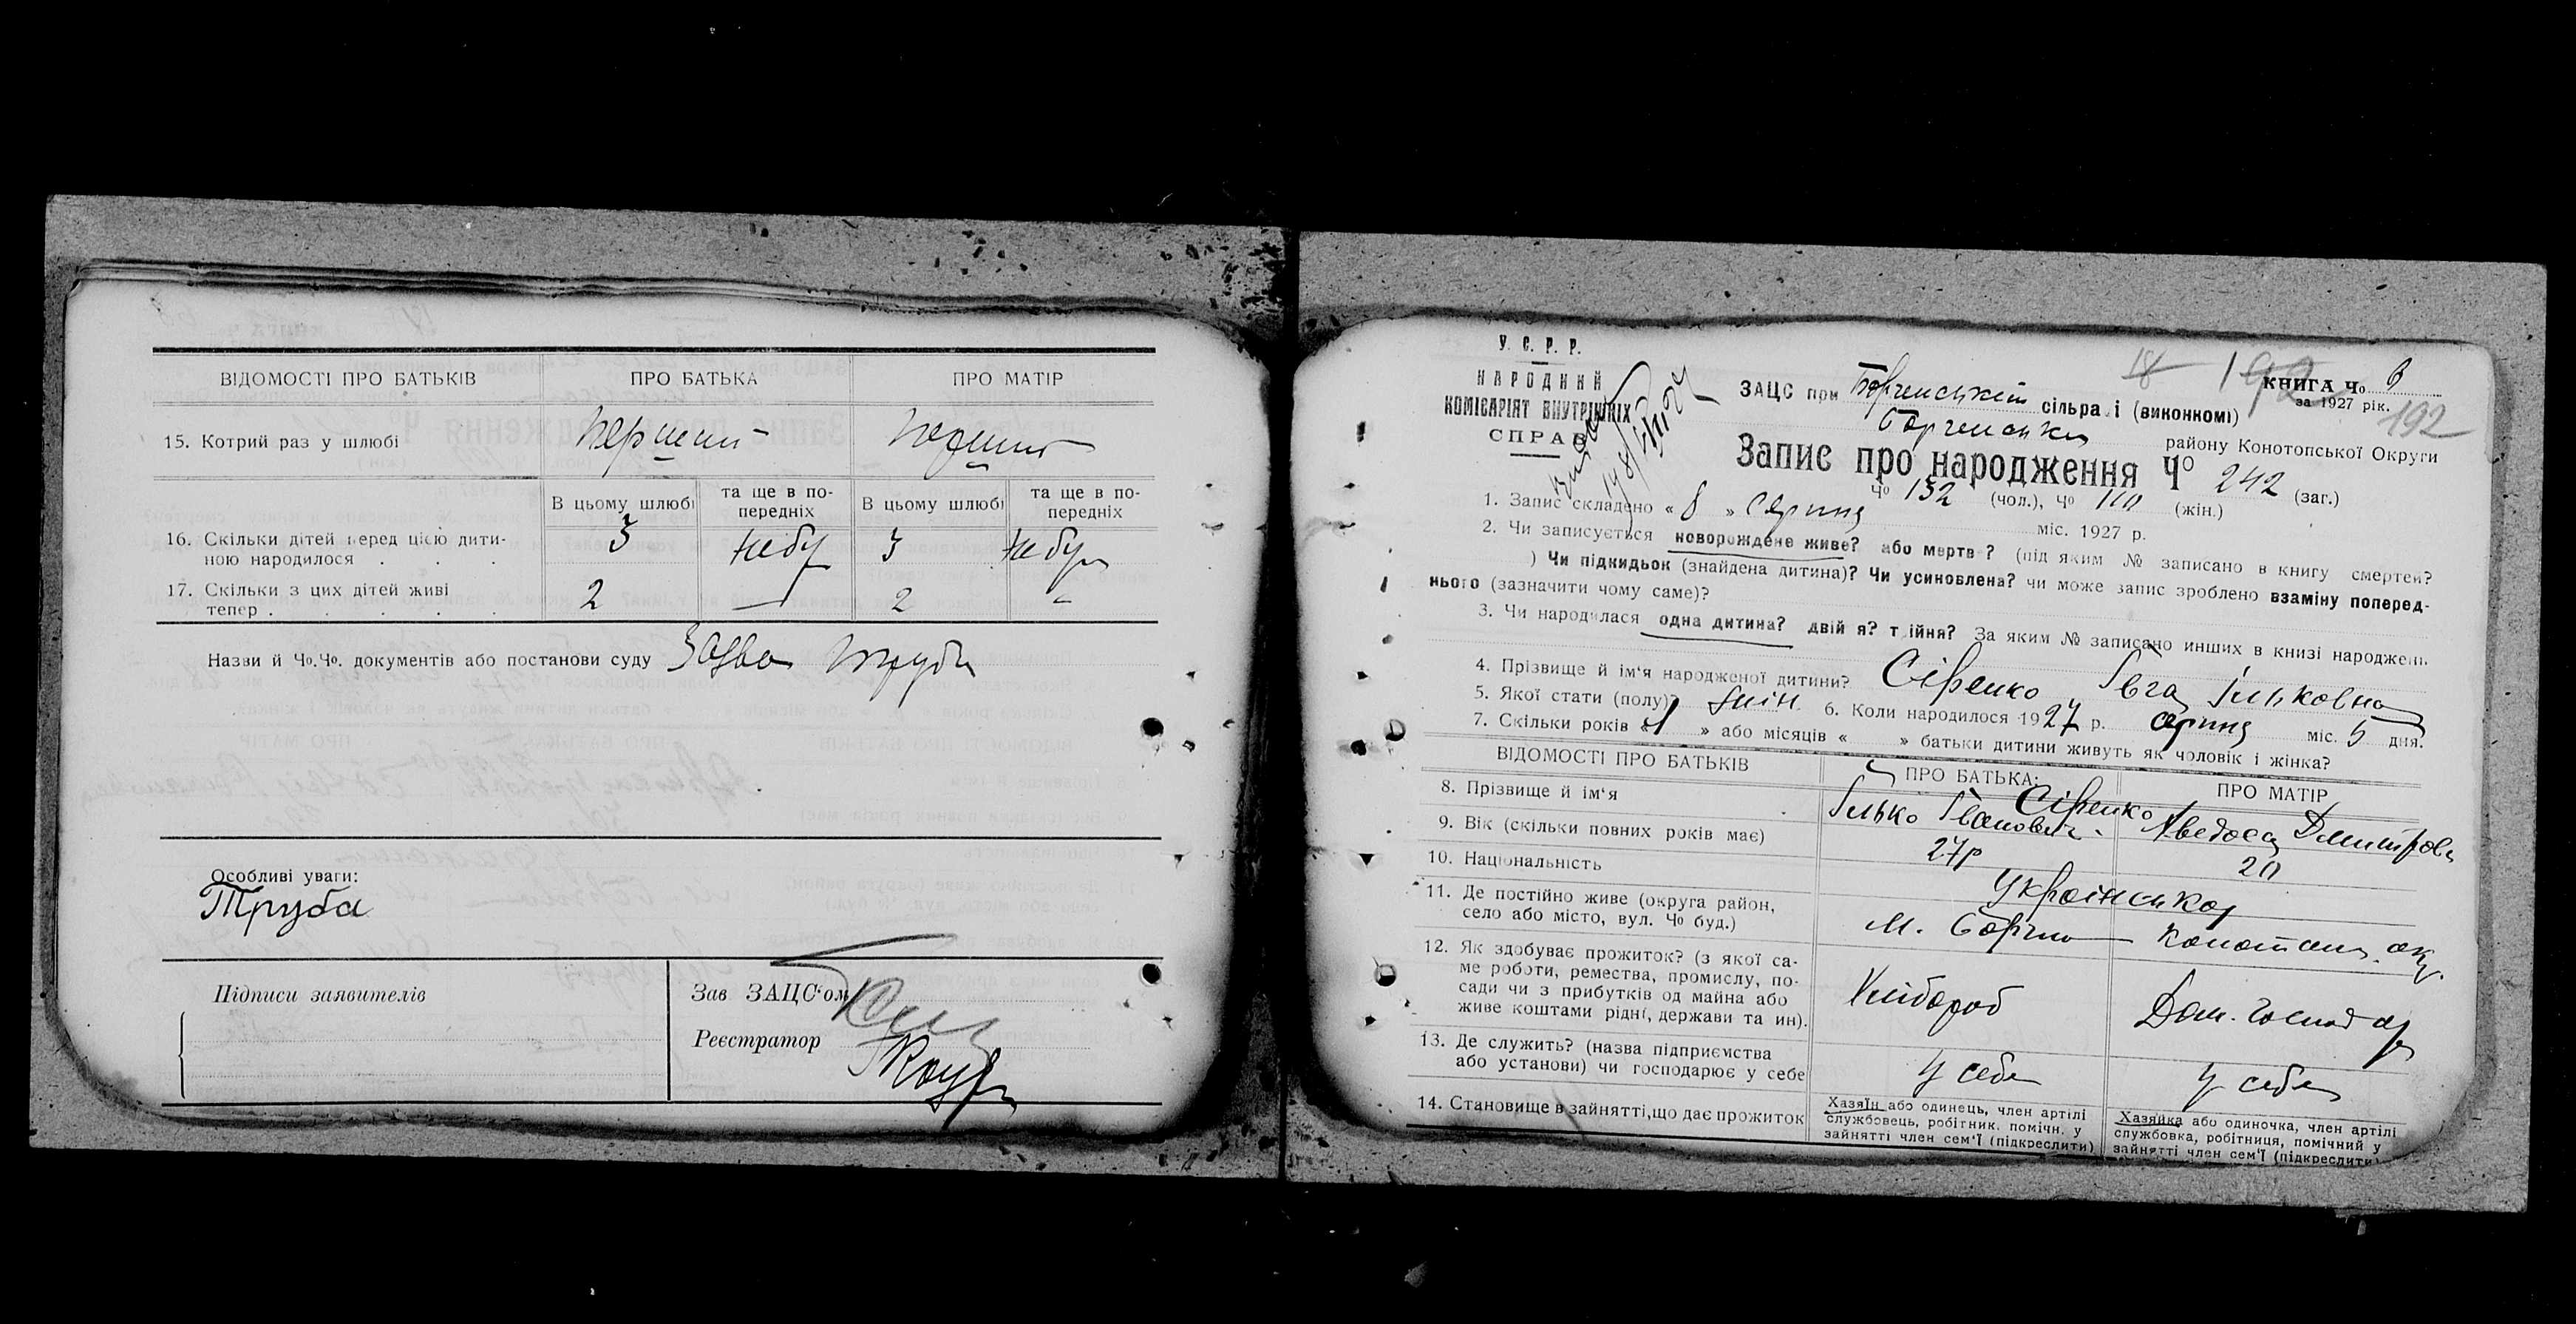 ВІДОМОСТІ ПРО БАТЬКІВ ПРО БАТЬКА ПРО МАТІР
15. Котрий раз у шлюбі перший перший
В цьому шлюбі та ще в попередніх В цьому шлюбі та ще в попередніх
16. Скільки дітей перед цією дити-
ною народилося . . . 3 небу 3 небу
17. Скільки з цих дітей живі
тепер . . . . . . 2 — 2 "
Назви й Чо.Чо. документів або постанови суду Заява
Особливі уваги:
Труба
Підписи заявителів
Зав ЗАЦС'ом
Реєстратор
У. С. Р. Р.
НАРОДНИЙ
КОМІСАРІЯТ ВНУТРІШНІХ
СПРАВ
18 192 КНИГА Чо
за 1927 рік.
192
ЗАЦС при Борзенський сільраді (виконкомі)
Борзенська району Конотопської Округи
Запис про народження Чо 242 (заг.)
Чо 132 (чол.), Чо 110 (жін.)
1. Запис складено « 8 » серпня міс. 1927 р.
2. Чи записується новорождене живе? або мертве? (під яким № записано в книгу смертей?
) Чи підкидьок (знайдена дитина)? Чи усиновлена? чи може запис зроблено взаміну поперед-
нього (зазначити чому саме)?
3. Чи народилася одна дитина? двійня? трійня? За яким № записано инших в книзі народжень
4. Прізвище й ім'я народженої дитини? Сіренко Ївга Ільковна
5. Якої стати (полу)? жін. 6. Коли народилося 1927 р. серпня міс. 5 дня.
7. Скільки років « » або місяців « » батьки дитини живуть як чоловік і жінка?
ВІДОМОСТІ ПРО БАТЬКІВ ПРО БАТЬКА: ПРО МАТІР
8. Прізвище й ім'я Сіренко
Ілько Іванович Дмитрова
9. Вік (скільки повних років має) 27р
10. Національність Українська
11. Де постійно живе (округа район,
село або місто, вул. Чо буд.) м. Борзна Конотоп. окр.
12. Як здобуває прожиток? (з якої са-
ме роботи, ремества, промислу, по-
сади чи з прибутків од майна або
живе коштами рідні, держави та ин). Хлібороб Дом. господар
13. Де служить? (назва підприємства
або установи) чи господарює у себе у себе у себе
14. Становище в зайнятті, що дає прожиток
Хазяїн або одинець, член артілі
службовець, робітник. помічн. у
зайнятті член сем'ї (підкреслити)
Хазяйка або одиночка, член артілі
службовка, робітниця, помічний у
зайнятті член сем'ї (підкреслити)